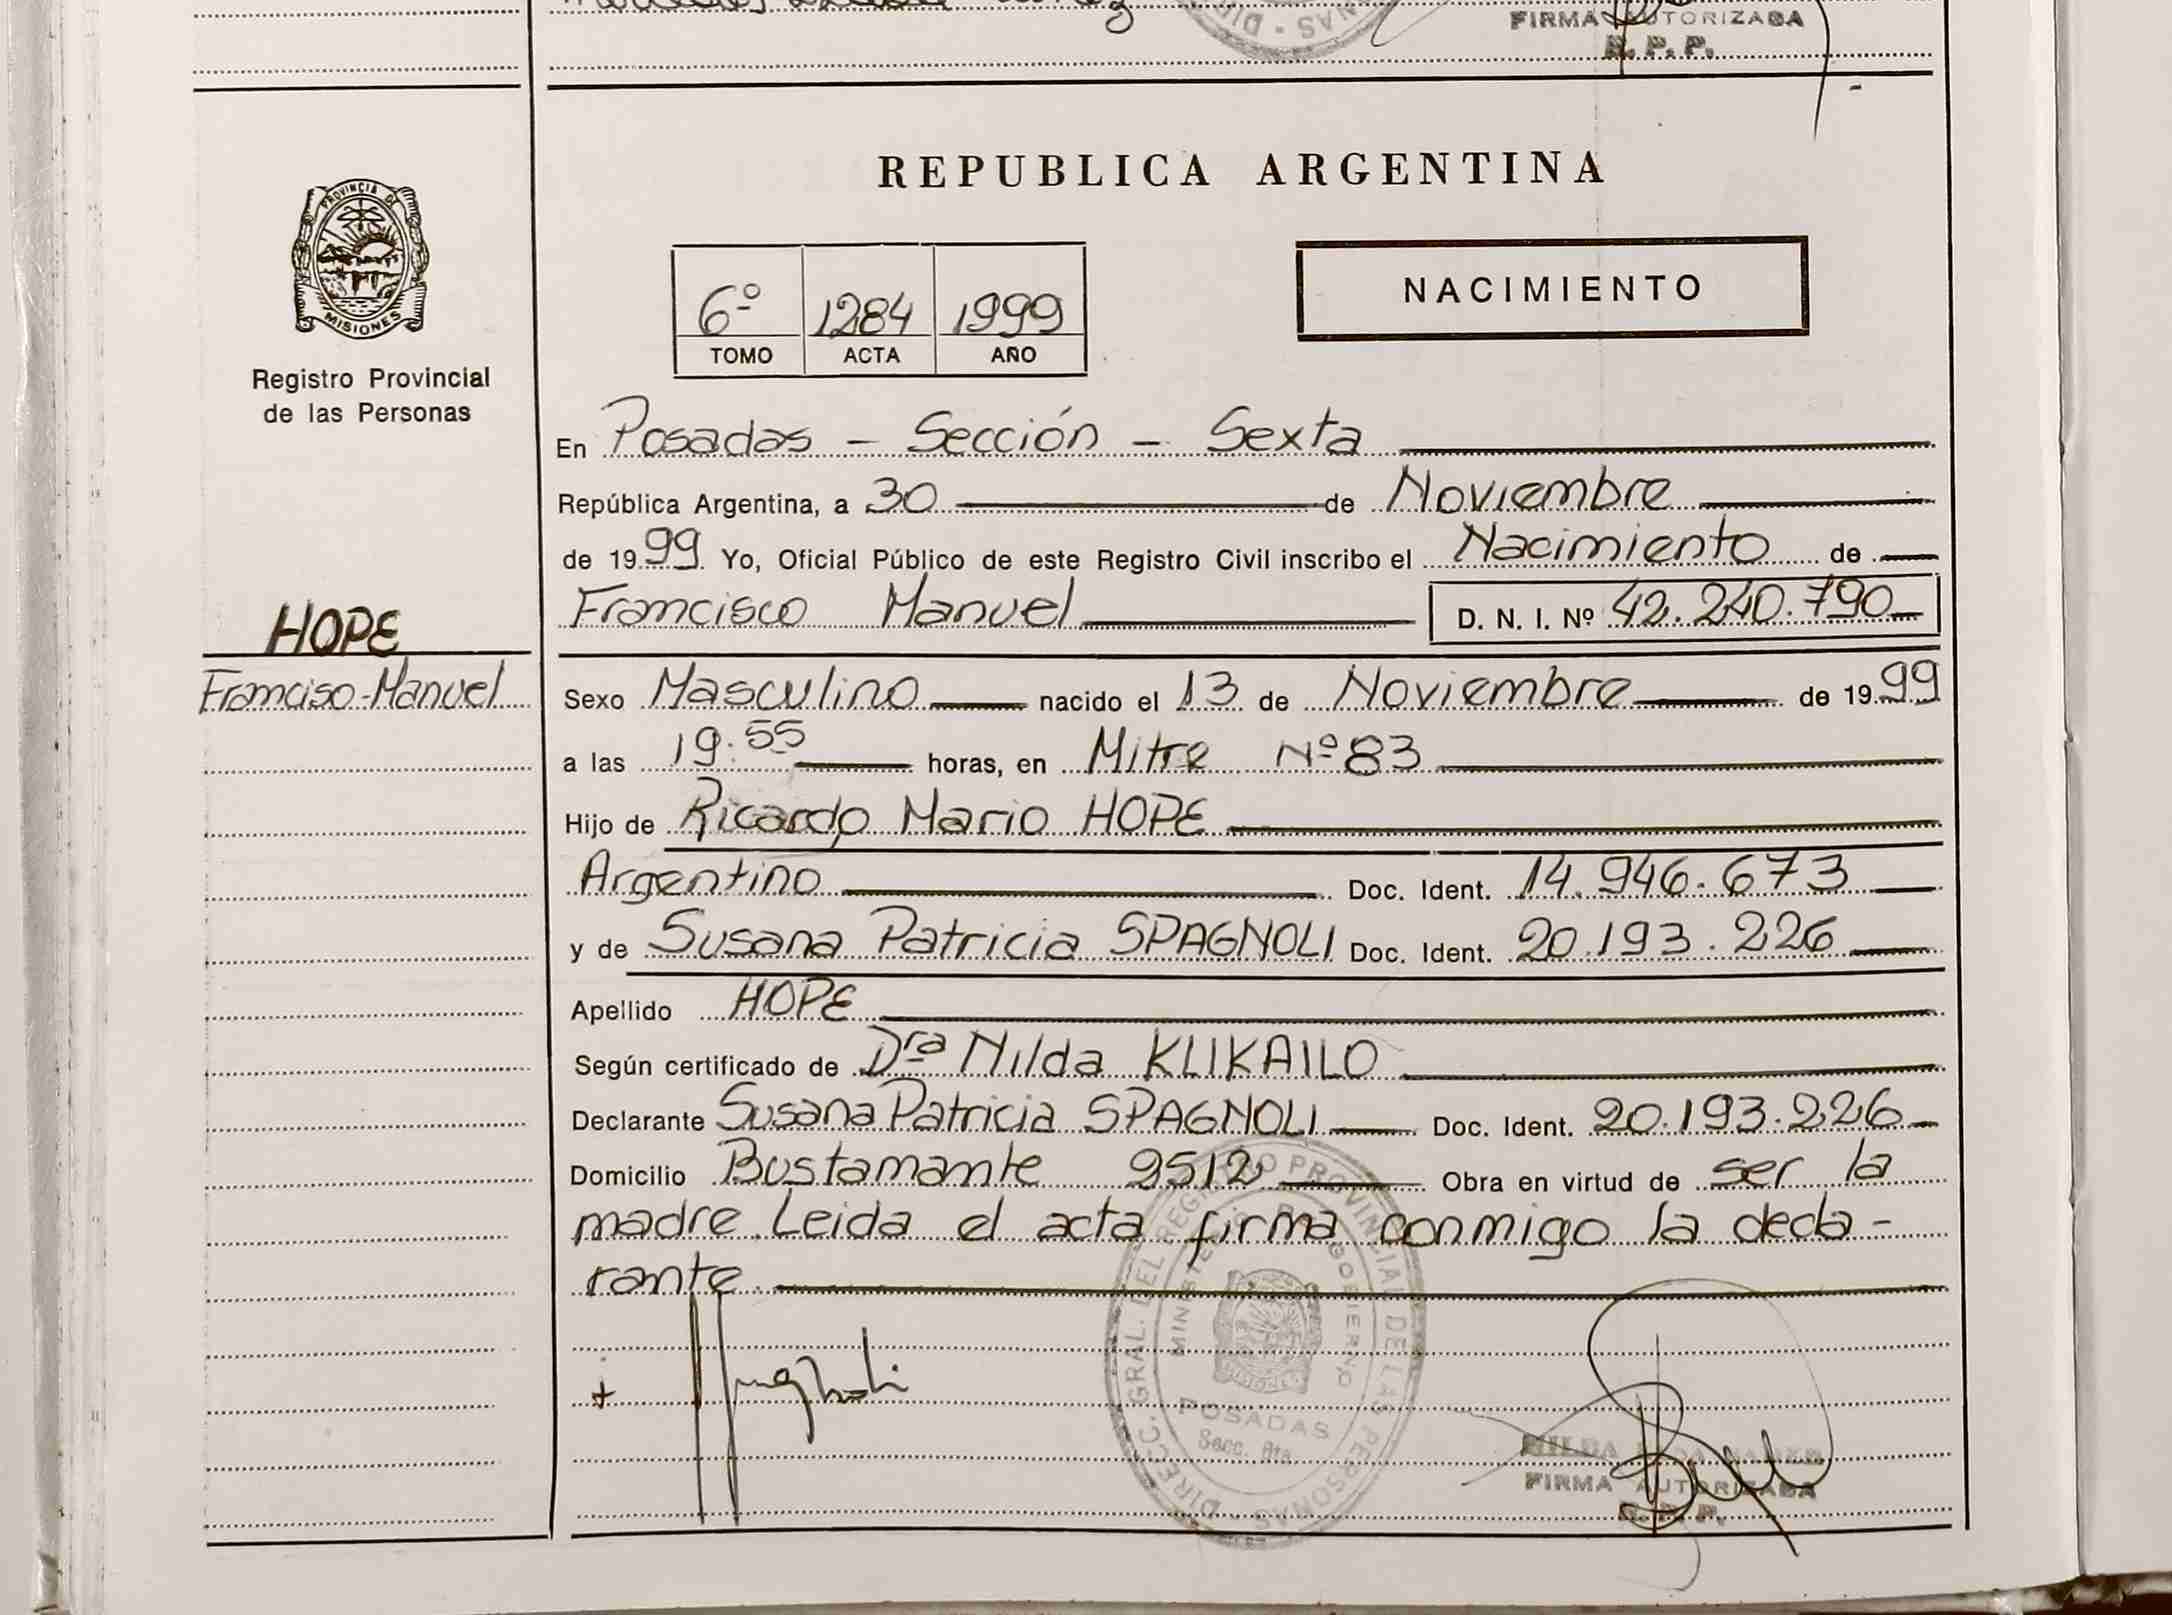 FIRMA AUTORIZADA
R. P. P.
PROVINCIA DE
MISIONES
Registro Provincial
de las Personas
HOPE
Franciso-Manuel
REPUBLICA ARGENTINA
6º 1284 1999
TOMO ACTA AÑO
NACIMIENTO
En Posadas - Sección - Sexta
República Argentina, a 30 de Noviembre
de 1999 Yo, Oficial Público de este Registro Civil inscribo el Nacimiento de
Francisco Manuel D. N. I. Nº 42.240.790
Sexo Masculino nacido el 13 de Noviembre de 1999
a las 19.55 horas, en Mitre Nº 83
Hijo de Ricardo Mario HOPE
Argentino Doc. Ident. 14.946.673
y de Susana Patricia SPAGNOLI Doc. Ident. 20.193.226
Apellido HOPE
Según certificado de Dra Nilda KLIKAILO
Declarante Susana Patricia SPAGNOLI Doc. Ident. 20.193.226
Domicilio Bustamante 9512 Obra en virtud de ser la
madre. Leida el acta firma conmigo la decla-
rante
DIREC. GRAL. DEL REGISTRO PROVINCIAL DE LAS PERSONAS
MINISTERIO DE GOBIERNO
POSADAS
Secc. 6ta.
FIRMA AUTORIZADA
R. P. P.